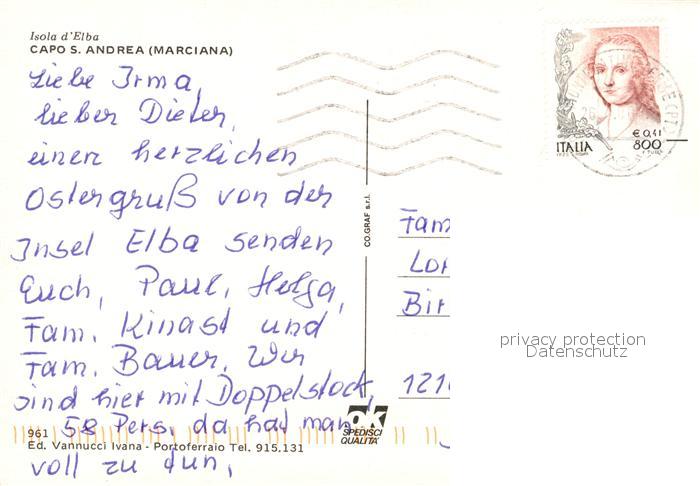 Isola d'Elba
CAPO S. ANDREA (MARCIANA)
Liebe Irma,
lieber Dieter,
einen herzlichen
Ostergruß von der
Insel Elba senden
Euch, Paul, Helga,
Fam. Kinast und
Fam. Bauer. Wir
sind hier mit Doppelstock,
58 Pers. da hat man
voll zu tun,
961
Ed. Vannucci Ivana - Portoferraio Tel. 915.131
CO.GRAF s.r.l.
OK
SPEDISCI
QUALITA'
€ 0,41
ITALIA 800
Fam
Lor
Bir
121
privacy protection
Datenschutz